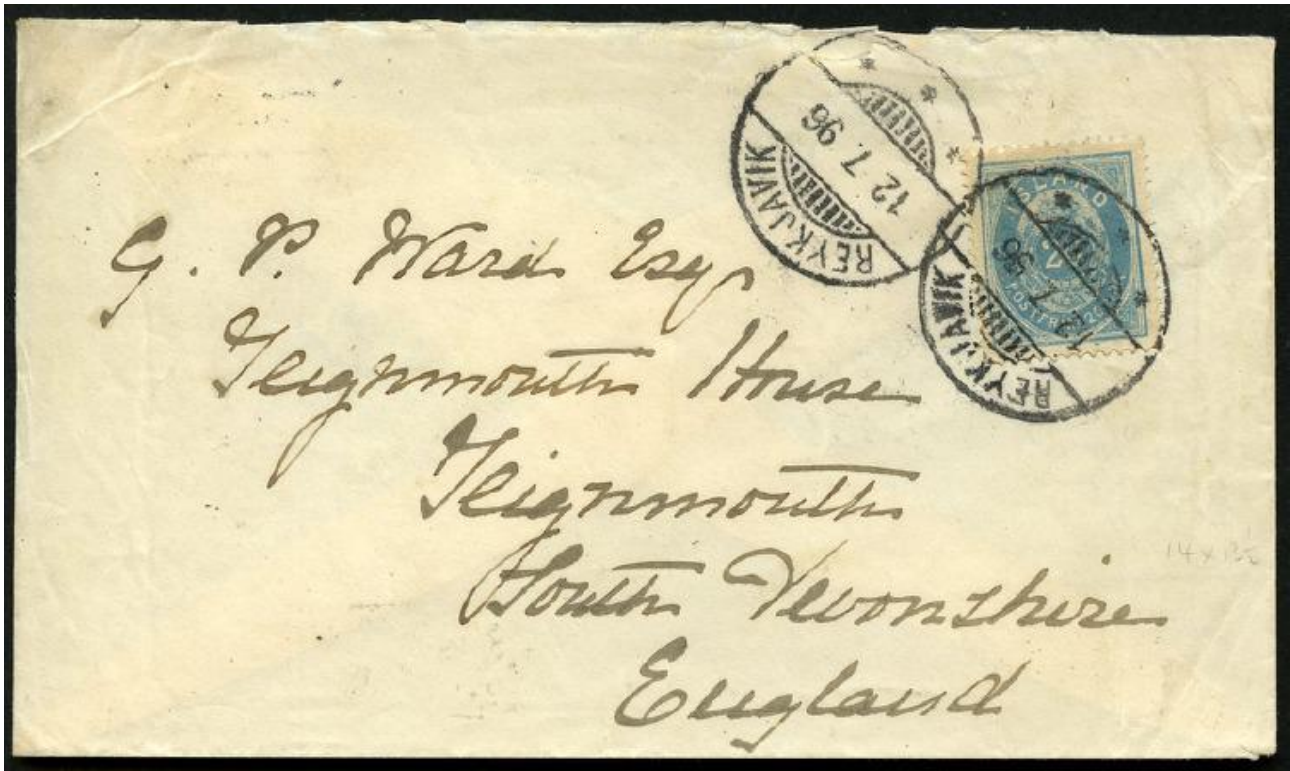 REYKJAVIK
12. 7. 96
ISLAND
REYKJAVIK
12. 7. 96
G. P. Ward Esq.
Teignmouth House
Teignmouth
South Devonshire
England